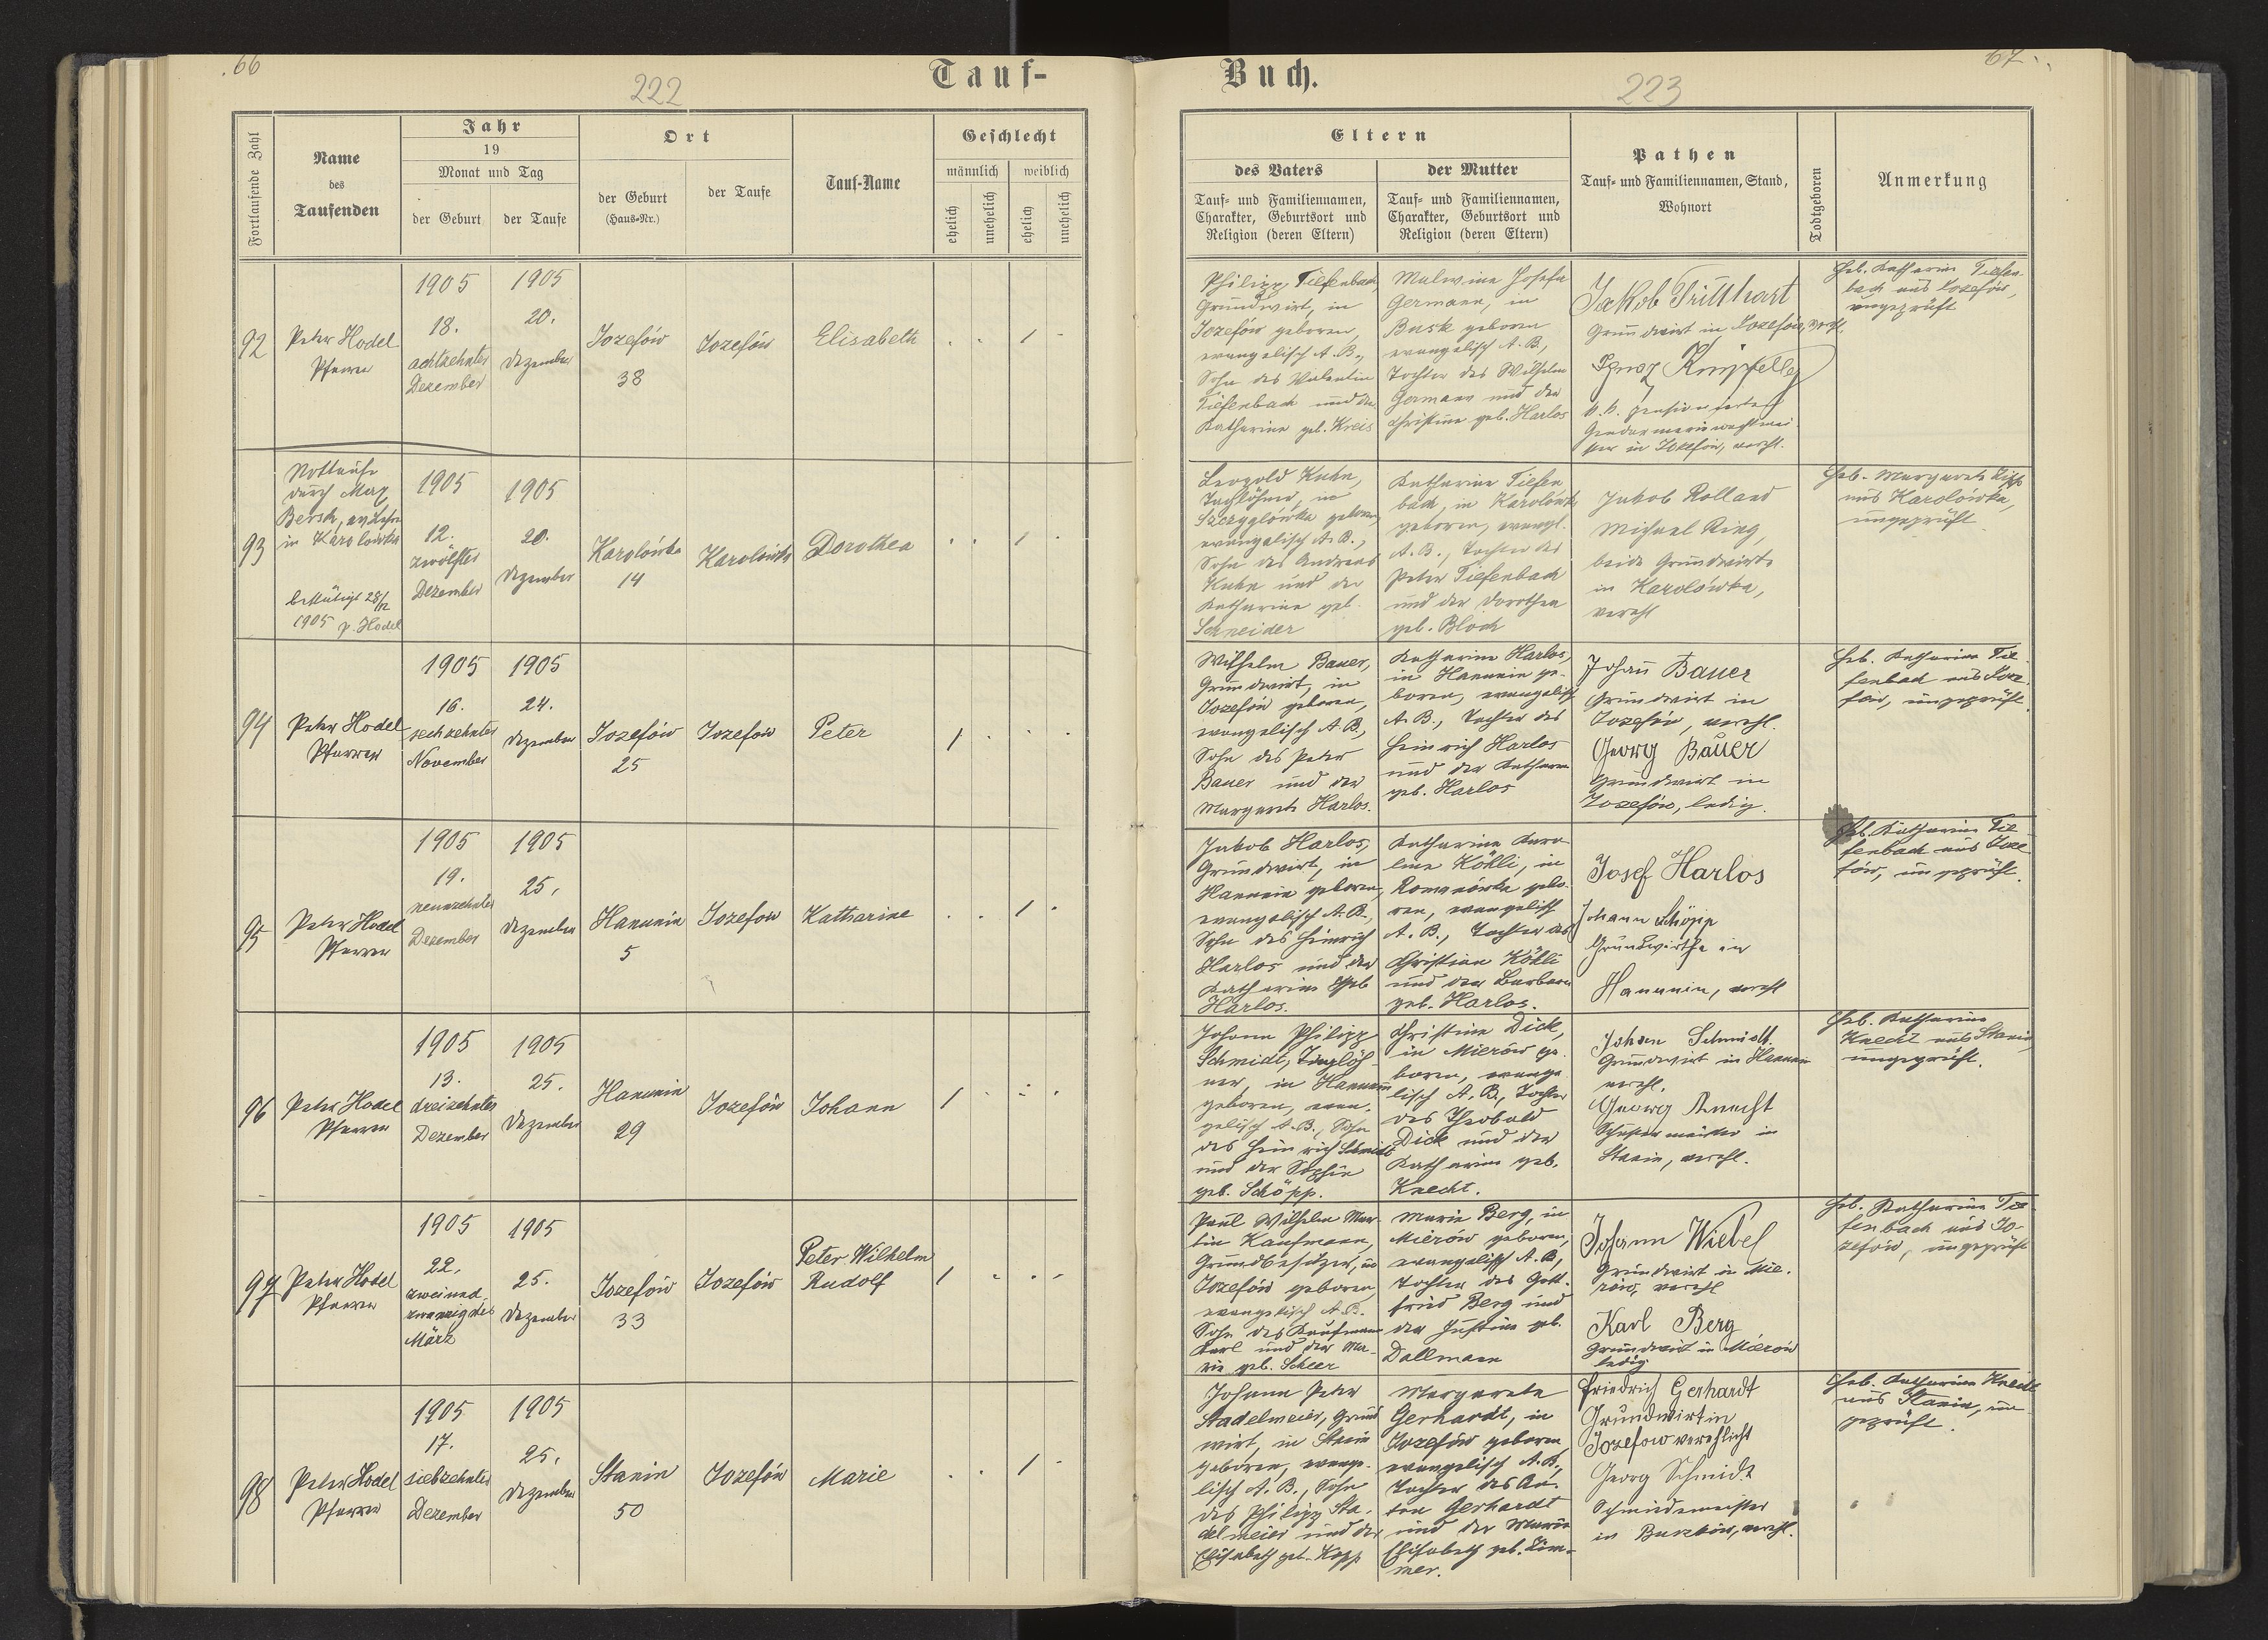 66
222
Tauf-
Fortlaufende Zahl
Name
des
Taufenden
Jahr
19
Monat und Tag
der Geburt
der Taufe
Ort
der Geburt
(Haus-Nr.)
der Taufe
Tauf-Name
Geschlecht
männlich
weiblich
ehelich
unehelich
ehelich
unehelich
92
Peter Hodel
Pfarrer
1905
18.
achtzehnter
Dezember
1905
20.
Dezember
Jozefów
38
Jozefów
Elisabeth
1
93
Nottaufe
durch
Bersch,
in Karolówka
bestätigt 28/12
1905 p. Hodel
1905
12.
zwölfter
Dezember
1905
20.
Dezember
Karolówka
14
Karolówka
Dorothea
1
94
Peter Hodel
Pfarrer
1905
16.
sechzehnter
November
1905
24.
Dezember
Jozefów
25
Jozefow
Peter
1
95
Peter Hodel
Pfarrer
1905
19.
neunzehnter
Dezember
1905
25.
Dezember
Hanunin
5
Jozefow
Katharine
1
96
Peter Hodel
Pfarrer
1905
13.
dreizehnter
Dezember
1905
25.
Dezember
Hanunin
29
Jozefów
Johann
1
97
Peter Hodel
Pfarrer
1905
22.
zweiund
zwanzigster
März
1905
25.
Dezember
Jozefów
33
Jozefów
Peter Wilhelm
Rudolf
1
98
Peter Hodel
Pfarrer
1905
17.
siebzehnter
Dezember
1905
25.
Dezember
Stanin
50
Jozefów
Marie
1
67
Buch.
223
Eltern
des Vaters
Tauf- und Familiennamen,
Charakter, Geburtsort und
Religion (deren Eltern)
der Mutter
Tauf- und Familiennamen,
Charakter, Geburtsort und
Religion (deren Eltern)
Pathen
Tauf- und Familiennamen, Stand,
Wohnort
Todtgeboren
Anmerkung
Philipp Tiefenbach,
Grundwirt, in
Jozefów geboren,
evangelisch A. B.,
Sohn des Valentin
Tiefenbach und der
Katharine geb. Kreis
Malwine Josefa
Germann, in
Busk geboren
evangelisch A. B.,
Tochter des Wilhelm
Germann und der
Christine geb. Harlos
Jakob Tritthart
Grundwirt in Jozefów, verehl.
Ignaz
k. k. pensionierter
Gendarmeriewachtmei
ster in Jozefów, verehl.
Heb. Katharine Tiefen
bach aus Jozefów,
ungeprüft
Leopold Kuhn,
Taglöhner, in
Szczyglówka geboren,
evangelisch A. B.,
Sohn des Andreas
Kuhn und der
Katharine geb.
Schneider
Katharine Tiefen
bach, in Karolówka
geboren, evangl.
A. B., Tochter des
Peter Tiefenbach
und der Dorothea
geb. Bloch
Jakob Rolland
Michael Ring,
beide Grundwirte
in Karolówka,
verehl
Heb. Margarete
aus Karolówka,
ungeprüft
Wilhelm Bauer,
Grundwirt, in
Jozefów geboren,
evangelisch A. B.,
Sohn des Peter
Bauer und der
Margarete Harlos.
Katharine Harlos,
in Hanunin ge-
boren, evangelisch
A. B., Tochter des
Heinrich Harlos
und der Katharine
geb. Harlos
Johann Bauer
Grundwirt in
Jozefów, verehl.
Georg Bauer
Grundwirt in
Jozefów, ledig.
Heb. Katharine Tie-
fenbach aus Joze
fów, ungeprüft.
Jakob Harlos,
Grundwirt, in
Hanunin geboren,
evangelisch A. B.,
Sohn des Heinrich
Harlos und der
Katharine geb
Harlos.
Katharine Karo
line Köhli, in
Romanówka gebo-
ren, evangelisch
A. B., Tochter des
Christian Köhli
und der Barbara
geb. Harlos.
Josef Harlos
Johann Schöpp
Grundwirthe in
Hanunin, verehl
Heb. Katharine Tie
fenbach aus Joze
fów, ungeprüft.
Johann Philipp
Schmidt, Taglöh-
ner, in Hanunin
geboren, evan-
gelisch A. B., Sohn
des Heinrich Schmidt
und der Sophie
geb. Schöpp.
Christine Dick,
in Mierów ge-
boren, evange
lisch A. B., Tochter
des Theobald
Dick und der
Katharine geb.
Knecht.
Johann Schmidt
Grundwirt in Hanunin
verehl.
Georg Knecht
Schustermeister in
Stanin, verehl.
Heb. Katharine
Knecht aus Stanin,
ungeprüft.
Paul Wilhelm Mar-
tin Kaufmann,
Grundbesitzer, in
Jozefów geboren,
evangelisch A. B.
Sohn des Kaufmann
Karl und der Ma-
rie geb. Scheer
Marie Berg, in
Mierów geboren,
evangelisch A. B.,
Tochter des Gott-
fried Berg und
der Justine geb.
Dallmann
Johann Wiebel
Grundwirt in Mie-
rów, verehl
Karl Berg
Grundwirt in Mierów
ledig
Heb. Katharine Tie-
fenbach aus Jo-
zefow, ungeprüft
Johann Peter
Stadelmeier, Grund
wirt, in Stanin
geboren, evange-
lisch A. B., Sohn
des Philipp Sta-
delmeier und der
Elisabeth geb. Kopp
Margarete
Gerhardt, in
Jozefów geboren
evangelisch A. B.,
Tochter des An-
ton Gerhardt
und der Marie
Elisabeth geb. Läm-
mer.
Friedrich Gerhardt
Grundwirt in
Jozefow verehlicht
Georg Schmidt
Schmiedemeister
in Buczków, verehl.
Heb. Katharine Knecht
aus Stanin, un
geprüft.